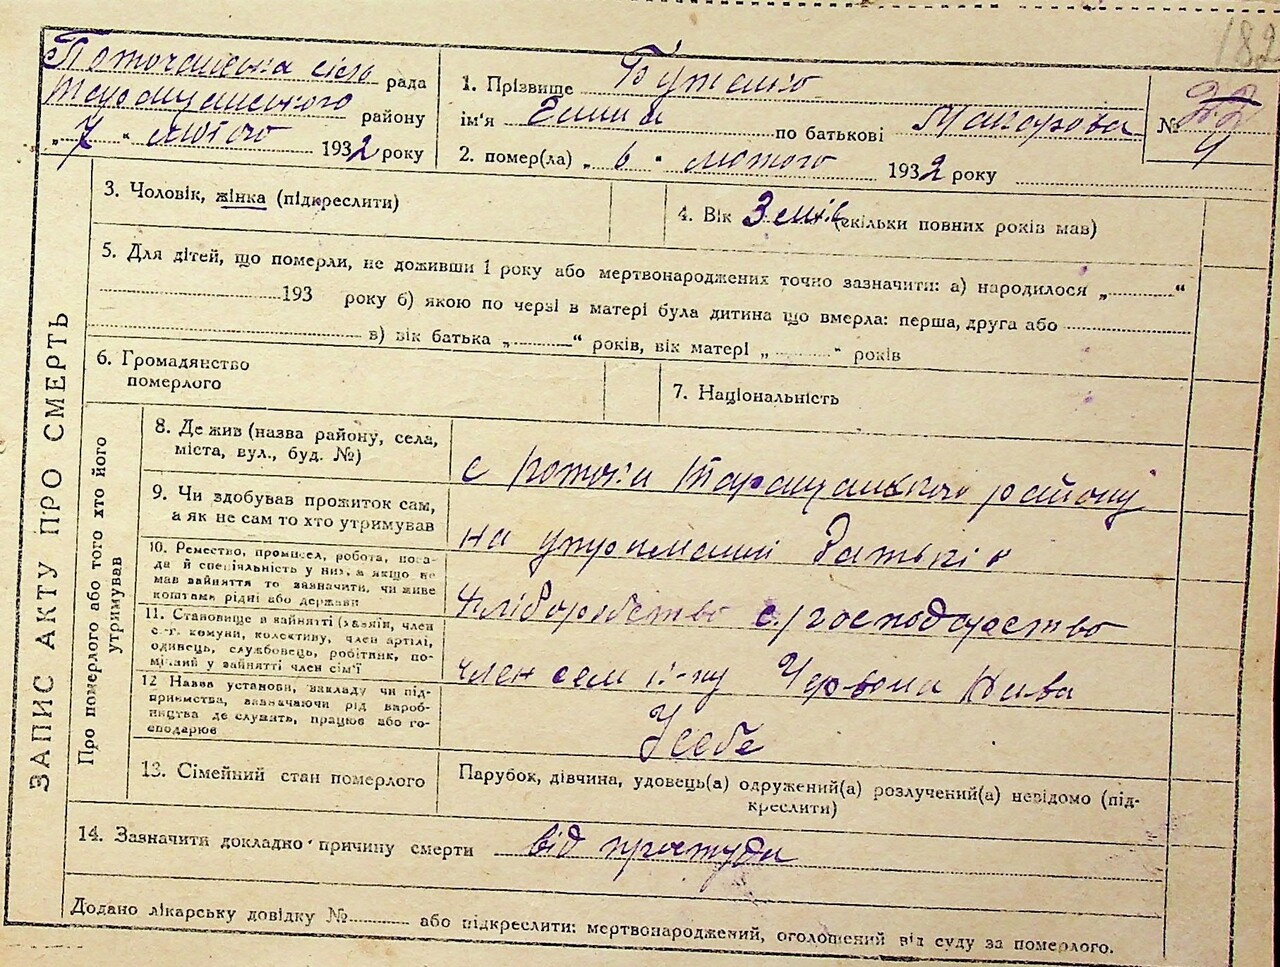 182
Поточанська сіль рада
Таращанського району
„ 7 “ лютого 1932 року
1. Прізвище
ім'я по батькові Макарова
№ 22
4
2. помер(ла) „ 6 “ лютого 1932 року
ЗАПИС АКТУ ПРО СМЕРТЬ
3. Чоловік, жінка (підкреслити)
4. Вік 3 (скільки повних років мав)
5. Для дітей, що померли, не доживши 1 року або мертвонароджених точно зазначити: а) народилося „..........“
193 року б) якою по черзі в матері була дитина що вмерла: перша, друга або
в) вік батька „..........“ років, вік матері „..........“ років
6. Громадянство
померлого
7. Національність
Про померлого або того хто його
утримував
8. Де жив (назва району, села,
міста, вул., буд. №)
с Потоки Таращанського району
9. Чи здобував прожиток сам,
а як не сам то хто утримував
на утриманні батьків
10. Ремество, промисел, робота, поса-
да й спеціяльність у них, а якщо не
мав зайняття то зазначити, чи живе
коштами рідні або держави
хліборобство с.господарство
11. Становище в зайнятті (хазяїн, член
с.-г. комуни, колективу, член артілі,
одивець, службовець, робітник, по-
мічний у зайнятті член сім'ї
член сем к-пу Червона Нива
12 Назва установи, закладу чи під-
приємства, зазначаючи рід вироб-
ництва де служить, працює або го-
сподарює
У себе
13. Сімейний стан померлого
Парубок, дівчина, удовець(а) одружений(а) розлучений(а) невідомо (під-
креслити)
14. Зазначити докладно причину смерти від простуди
Додано лікарську довідку №.......... або підкреслити: мертвонароджений, оголошений від суду за померлого.